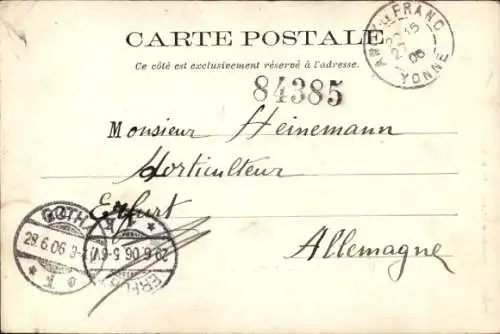 CARTE POSTALE
Ce côté est exclusivement réservé à l'adresse.
ANCY-LE-FRANC
YONNE
06
84385
Monsieur Heinemann
Horticulteur
Erfurt
Allemagne
GOTHA
29.6.06
29.6.06.5-6V.
ERFURT